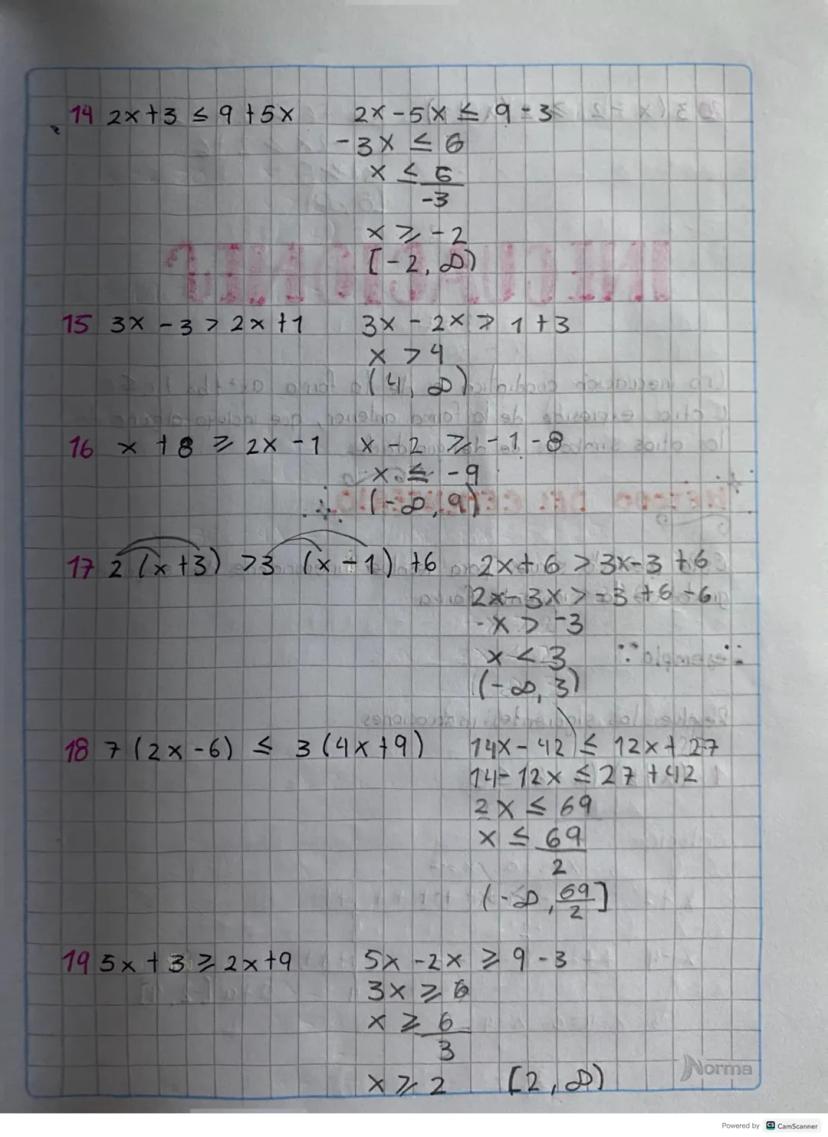 14 2x+3 ≤ 9+5x 2x-5x ≤ 9-3
-3x ≤ 6
x ≤ 6/-3
x ≥ -2
[-2, ∞)
15 3x-3 > 2x+1 3x-2x > 1+3
x > 4
(4, ∞)
16 x+8 ≥ 2x-1 x-2 ≥ -1-8
x ≤ -9
(-∞, 9)
17 2(x+3) > 3(x-1)+6 2x+6 > 3x-3+6
2x-3x > -3+6-6
-x > -3
x < 3
(-∞, 3)
18 7(2x-6) ≤ 3(4x+9) 14x-42 ≤ 12x+27
14-12x ≤ 27+42
2x ≤ 69
x ≤ 69/2
(-∞, 69/2]
19 5x+3 ≥ 2x+9 5x-2x ≥ 9-3
3x ≥ 6
x ≥ 6/3
x ≥ 2 [2, ∞)
Norma
Powered by CS CamScanner